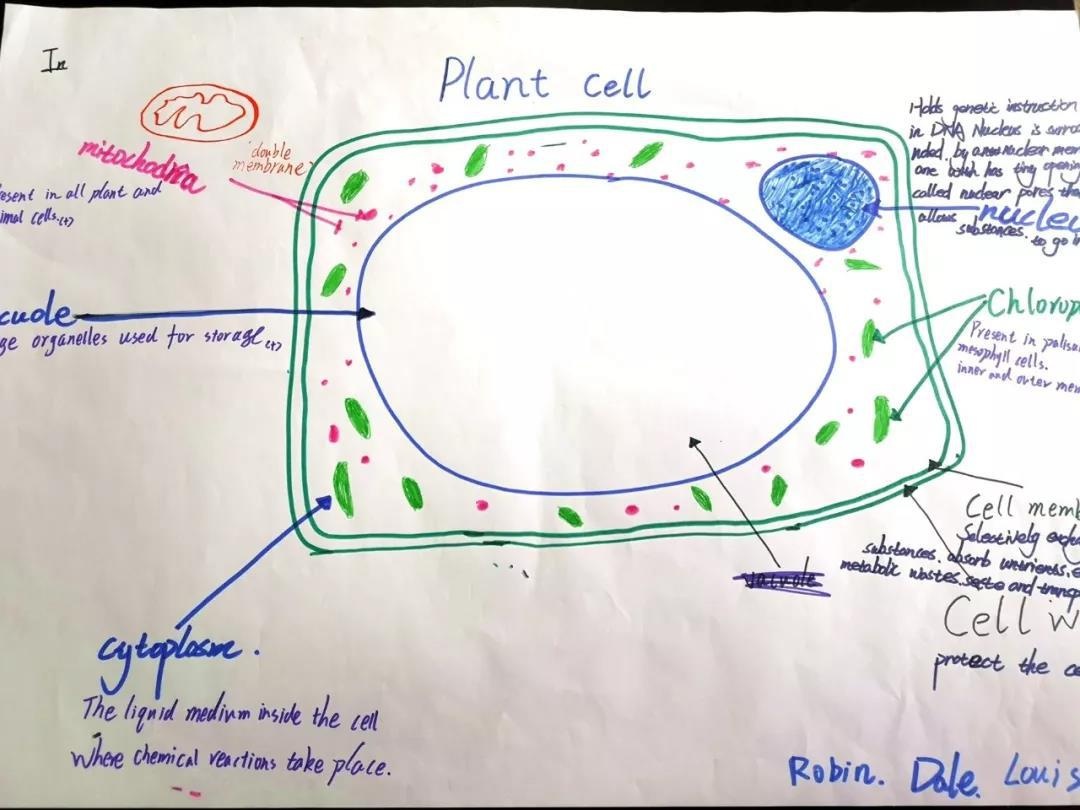 In
Plant cell
mitochodria
"double
membrane"
resent in all plant and
imal cells.(+)
cuole
ge organelles used for storage(+)
Holds genetic instruction
in DNA Nucleus is surro
nded by a nuclear mem
one
has tiny opening
called nuclear pores tha
allows substances.
to go in
nucleu
Chlorop
Present in palisa
mesophyll cells.
inner and outer mem
Cell memb
Selectively
substances. absorb
metabolic wastes. and transp
vacuole
Cell w
protect the ce
cytoplasme.
The liquid medium inside the cell
Where chemical reactions take place.
Robin. Dale. Louis